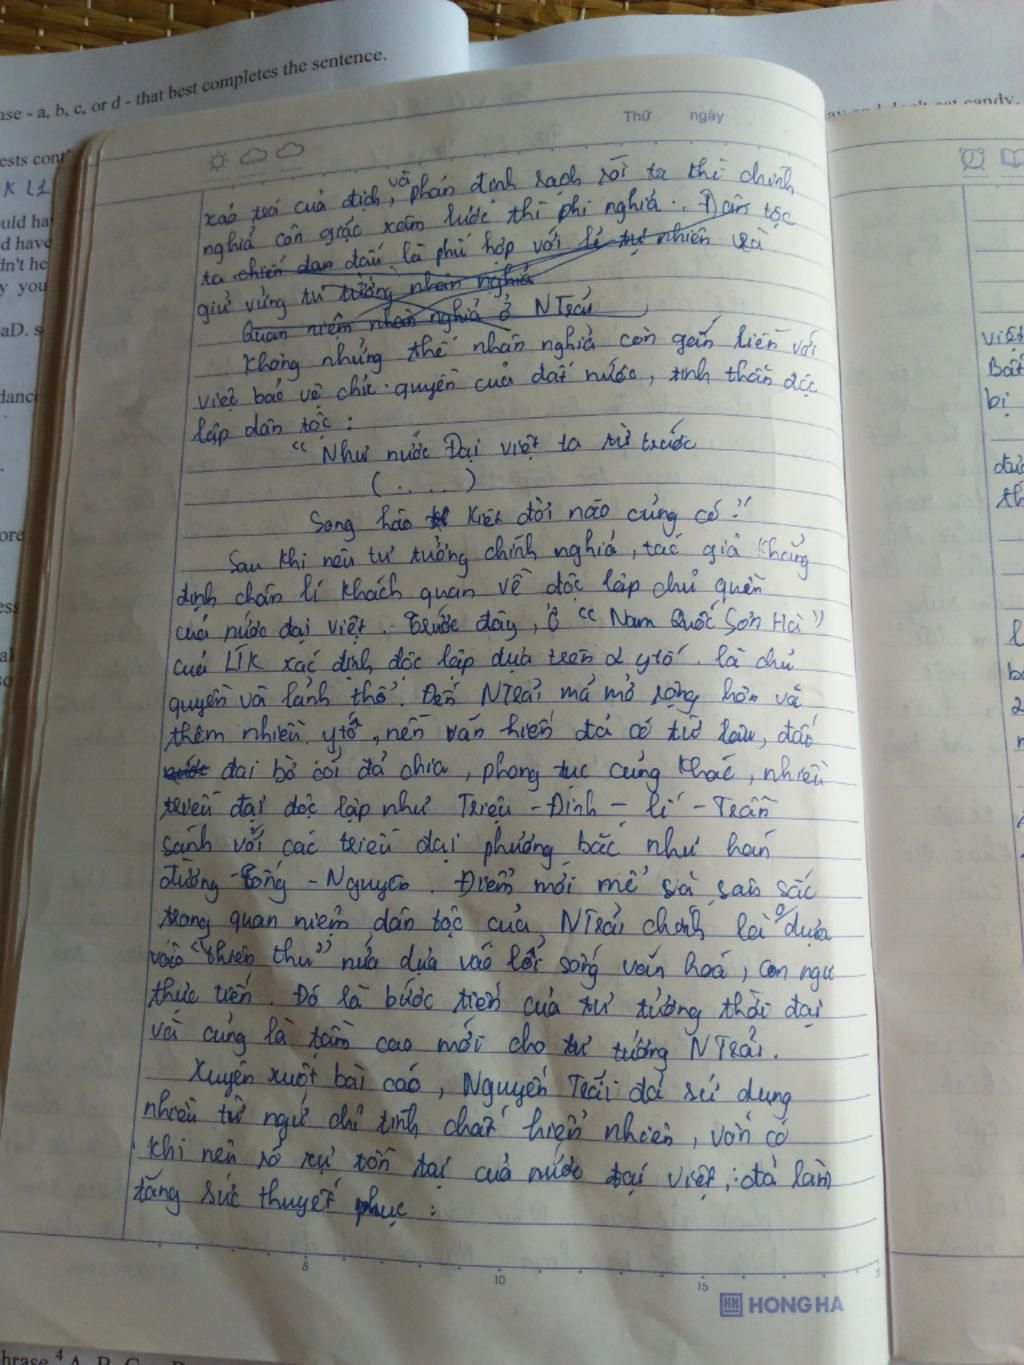 ase - a, b, c, or d - that best completes the sentence.
Thứ ngày
xảo trá của địch, và phân định rạch ròi ta thì chính
nghĩa còn giặc xâm lược thì phi nghĩa. Dân tộc
ta chiến đan đấu là phù hợp với lí tự nhiên và
giữ vững tư tưởng nhân nghĩa
Quan niệm nhân nghĩa ở NTrãi
Không những thế nhân nghĩa còn gắn liền với
việc bảo vệ chủ quyền của đất nước, tinh thần độc
lập dân tộc :
“ Như nước Đại Việt ta từ trước
(.....)
Song hào kiệt đời nào cũng có”
Sau khi nêu tư tưởng chính nghĩa, tác giả khẳng
định chân lí khách quan về độc lập chủ quyền
của nước đại việt. Trước đây, ở “ Nam Quốc Sơn Hà ”
của LTK xác định độc lập dựa trên 2 ytố là chủ
quyền và lãnh thổ. Đến NTrãi mà mở rộng hơn và
thêm nhiều ytố, nền văn hiến đã có từ lâu, đất
nước đai bờ cõi đã chia, phong tục cũng khác, nhiều
triều đại độc lập như Triệu - Đinh - lí - Trần
sánh với các triều đại phương bắc như hán
đường - Tống - Nguyên. Điểm mới mẻ và sâu sắc
trong quan niệm dân tộc của NTrãi chính là 0 dựa
vào “thiên thư” nữa dựa vào lối sống văn hoá, con ngư
thực tiễn. Đó là bước tiến của tư tưởng thời đại
và cũng là tầm cao mới cho tư tưởng NTrãi.
Xuyên suốt bài cáo, Nguyễn Trãi đã sử dụng
nhiều từ ngữ chỉ tính chất hiện nhiên, vốn có
khi nêu rõ sự tồn tại của nước đại việt, đã làm
tăng sức thuyết phục :
5
10
15
HONG HA